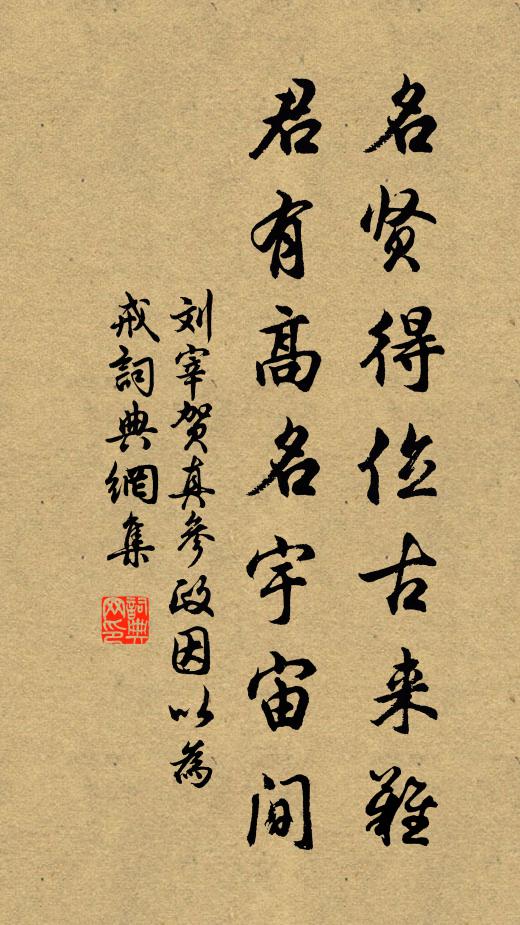 名贤得位古来难
君有高名宇宙间
刘宰贺真参政因以為
戒詞典網集
詞典
网印